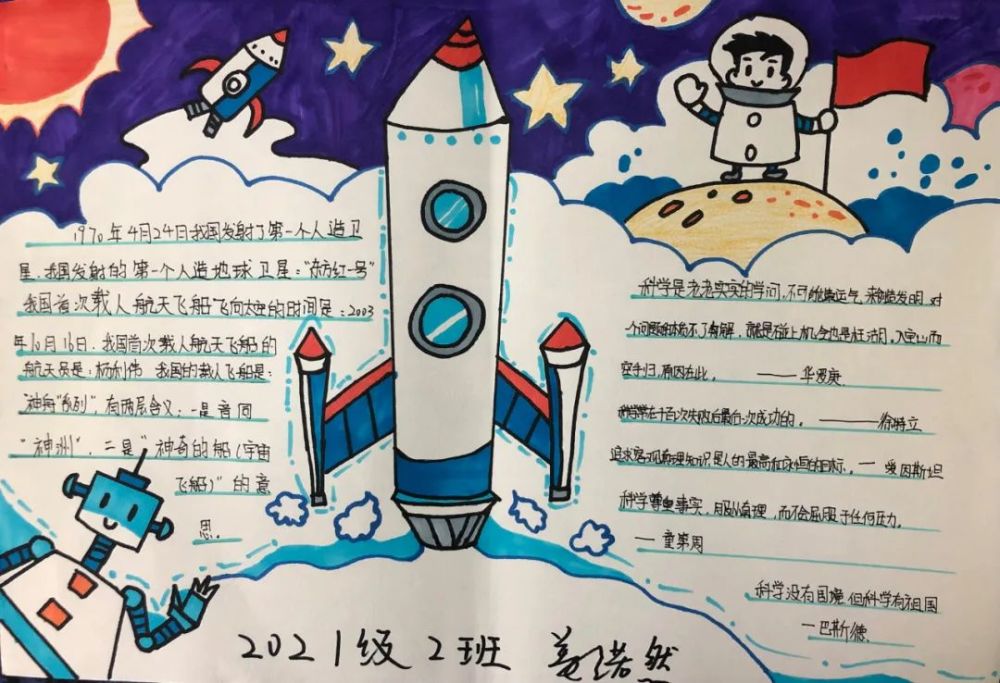 1970年4月24日我国发射了第一个人造卫
星.我国发射的第一个人造地球卫星:“东方红一号”
我国首次载人航天飞船飞向太空的时间是:2003
年10月16日.我国首次载人航天飞船的
航天员是:杨利伟 我国的载人飞船是:
“神舟”系列”,有两层含义:一是音同
“神洲”.二是“神奇的船(宇宙
飞船)”的意
思.
科学是老老实实的学问,不可能靠运气,来创造发明,对
个问题的本质不了解,就是碰上机会也是枉然,入宝山而
空手归,原因在此,——华罗庚.
科学常在千百次失败后最后一次成功的,——徐特立
追求客观真理知识是人的最高和永恒的目标,—爱因斯坦
科学尊重事实,服从真理,而不会屈服于任何压力.
—童第周
科学没有国境但科学有祖国
—巴斯德
2021级2班 然